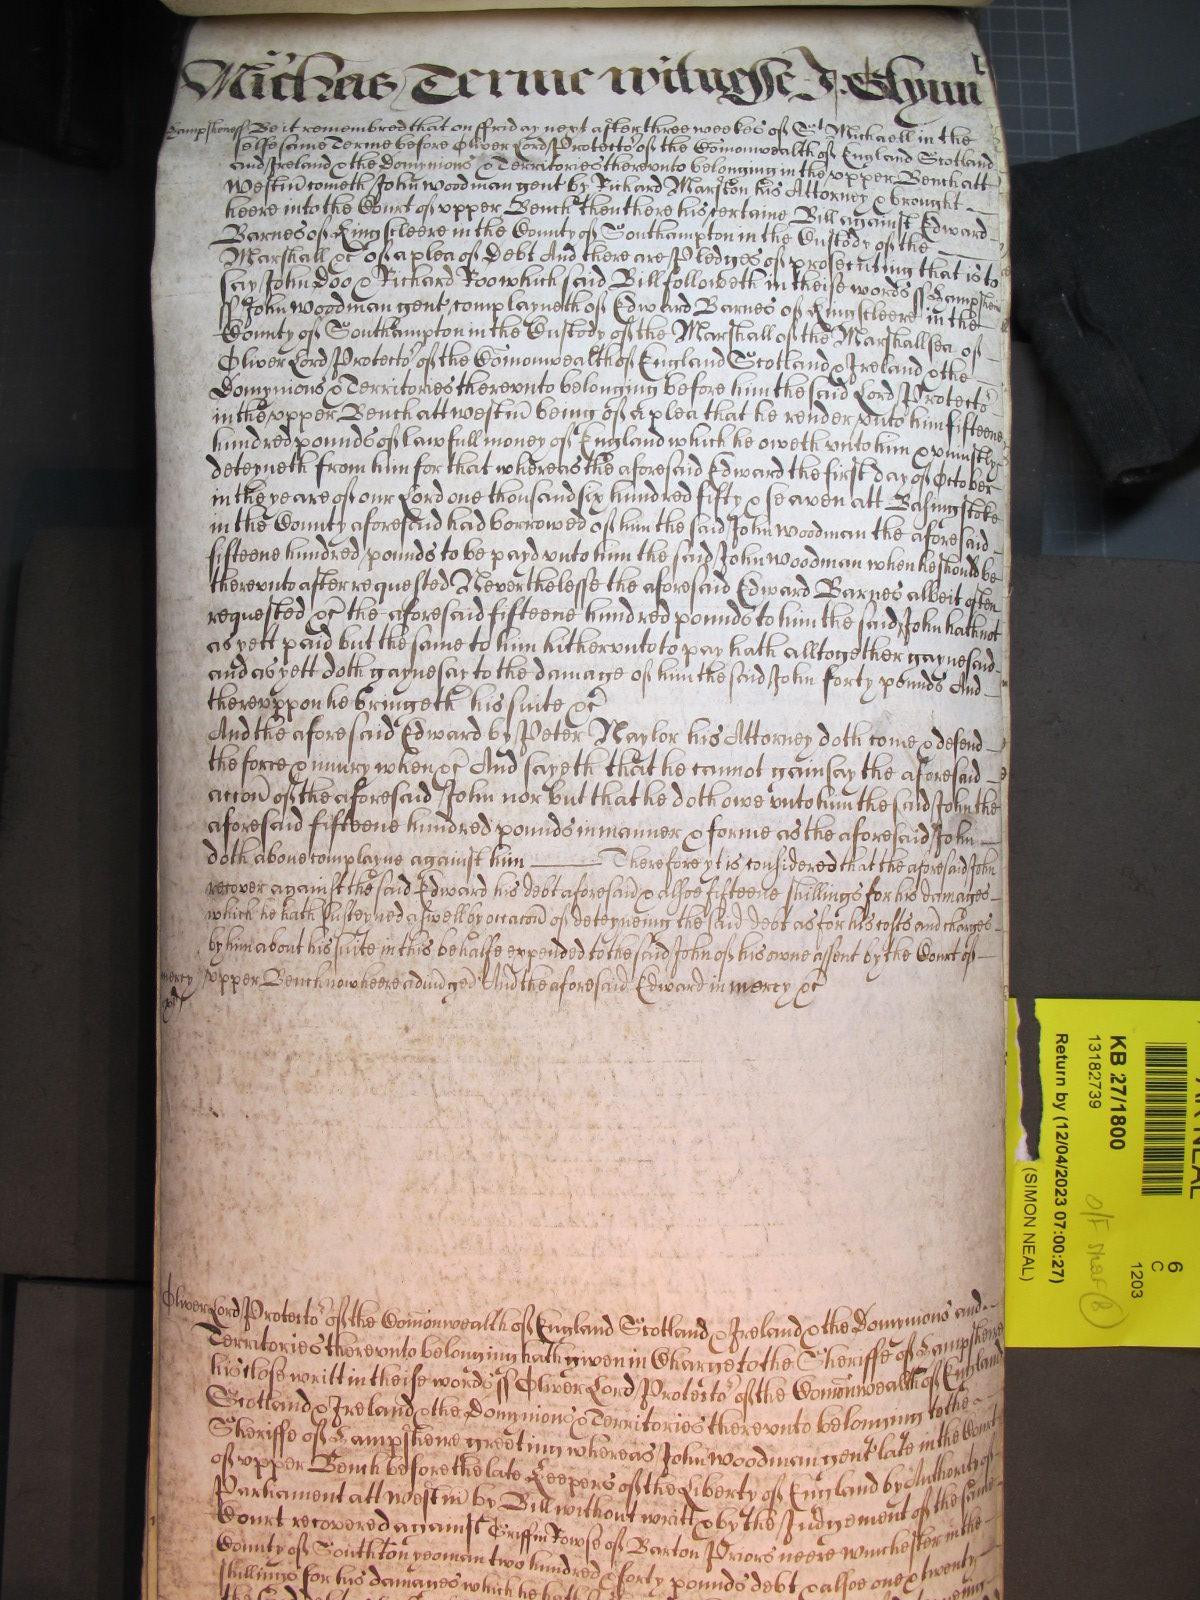 Michas Terme witnesse J. Glynn
Hampshere ss Be it remembred that on ffriday next after three weekes of St Michaell in the
selfe same Terme before Oliver Lord Protector of the Comonwealth of England Scotland
and Ireland & the Dominions & Territories therevnto belonging in the vpper Bench att
Westm cometh John Woodman gent by Richard Marston his Attorney & brought
heere into the Court of vpper Bench then there his certaine Bill against Edward
Barnes of Kingscleere in the County of Southampton in the Custody of the
Marshall &c of a plea of Debt And there are Pledges of prosecuting that is to
say John Doo & Richard Roo which said Bill followeth in theise words ss Hampshere
ss John Woodman gent complayneth of Edward Barnes of Kingscleere in the
County of Southampton in the Custody of the Marshall of the Marshallsea of
Oliver Lord Protector of the Comonwealth of England Scotland & Ireland & the
Dominions & Territories therevnto belonging before him the said Lord Protector
in the vpper Bench att Westm being of a plea that he render vnto him fifteene
hundred pounds of lawfull money of England which he oweth vnto him & vniustly
deteyneth from him for that whereas the aforesaid Edward the first day of October
in the yeare of our Lord one thousand six hundred fifty & seaven att Basingstoke
in the County aforesaid had borrowed of him the said John Woodman the aforesaid
fifteene hundred pounds to be payd vnto him the said John Woodman when he should be
therevnto after requested Neverthelesse the aforesaid Edward Barnes albeit often
requested &c the aforesaid fifteene hundred pounds to him the said John hath not
as yett paid but the same to him hithervnto to pay hath alltogether gaynesaid
and as yett doth gaynesay to the damage of him the said John forty pounds And
therevppon he bringeth his suite &c
And the aforesaid Edward by Peter Naylor his Attorney doth come & defend
the force & iniury when &c And sayeth that he cannot gainsay the aforesaid
accon of the aforesaid John nor but that he doth owe vnto him the said John the
aforesaid fifteene hundred pounds in manner & forme as the aforesaid John
doth above complayne against him Therefore yt is considered that the aforesaid John
recover against the said Edward his debt aforesaid & alsoe fifteene shillings for his damages
which he hath susteyned aswell by occacon of deteyneing the said debt as for his costs and charges
by him about his suite in this behalfe expended to the said John of his owne assent by the Court of
mercy &c
vpper Bench now heere adiudged And the aforesaid Edward in mercy &c
Oliver Lord Protector of the Comonwealth of England Scotland & Ireland & the Dominions and
Territories therevnto belonging hath given in Charge to the Sheriffe of Hampshere
his close writt in theise words ss Oliver Lord Protector of the Comonwealth of England
Scotland & Ireland & the Dominions & Territories therevnto belonging to the
Sheriffe of Hampshere greeting whereas John Woodman gent late in the Court
of vpper Bench before the late Keepers of the Liberty of England by Authority of
Parliament att Westm by Bill without writt & by the Judgement of the same
Court recovered against Griffin Rowse of Barton Priors neere Winchester in the
County of Southton yeoman two hundred & forty pounds debt & alsoe one & twenty
shillings for his damages which he hath
KB 27/1800
13182739
Return by (12/04/2023 07:00:27)
(SIMON NEAL)
6
C
1203